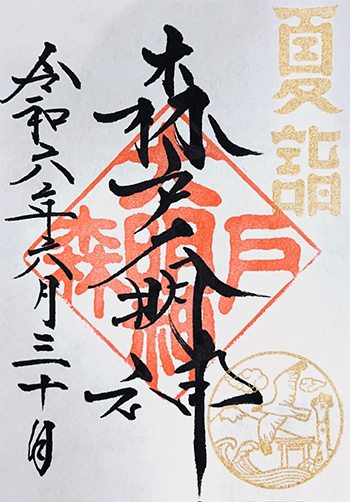 夏詣
森戸大明神
森戸大明神
令和六年六月三十日